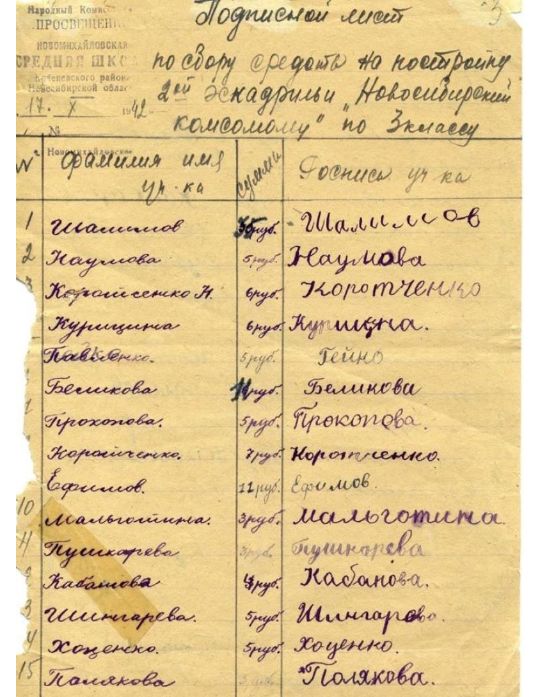 Народный Комис
ПРОСВЕЩЕН
НОВОМИХАЙЛОВСКАЯ
СРЕДНЯЯ ШКО
Коченевского район
Новосибирской облас
17. X 1942
№
Новомихайловское
Подписной лист 3
по сбору средств на постройку
2ой эскадрильи „Новосибирский
комсомолу" по 3 классу
№ фамилия имя уч-ка сумма Роспись уч-ка
1 Шалимов руб. Шалимов
2 Наумова 5 руб. Наумова
3 Коротченко Н. 6 руб. Коротченко
Курицина 6 руб. Курицина.
Павленко. 5 руб. Гейно
Беликова руб. Беликова
7 Прохопова. 5 руб. Прокопова.
Коротченко. 7 руб. Коротченко.
Ефимов. 11 руб. Ефимов.
10 Мальготина. 3 руб. Мальготина
11 Пушкарева 3 руб. Пушкарева
2 Кабанова руб. Кабанова.
3 Шингарева. 5 руб. Шингарова.
4 Хоценко. 5 руб. Хоценко.
15 Палякова 3 руб. Полякова.